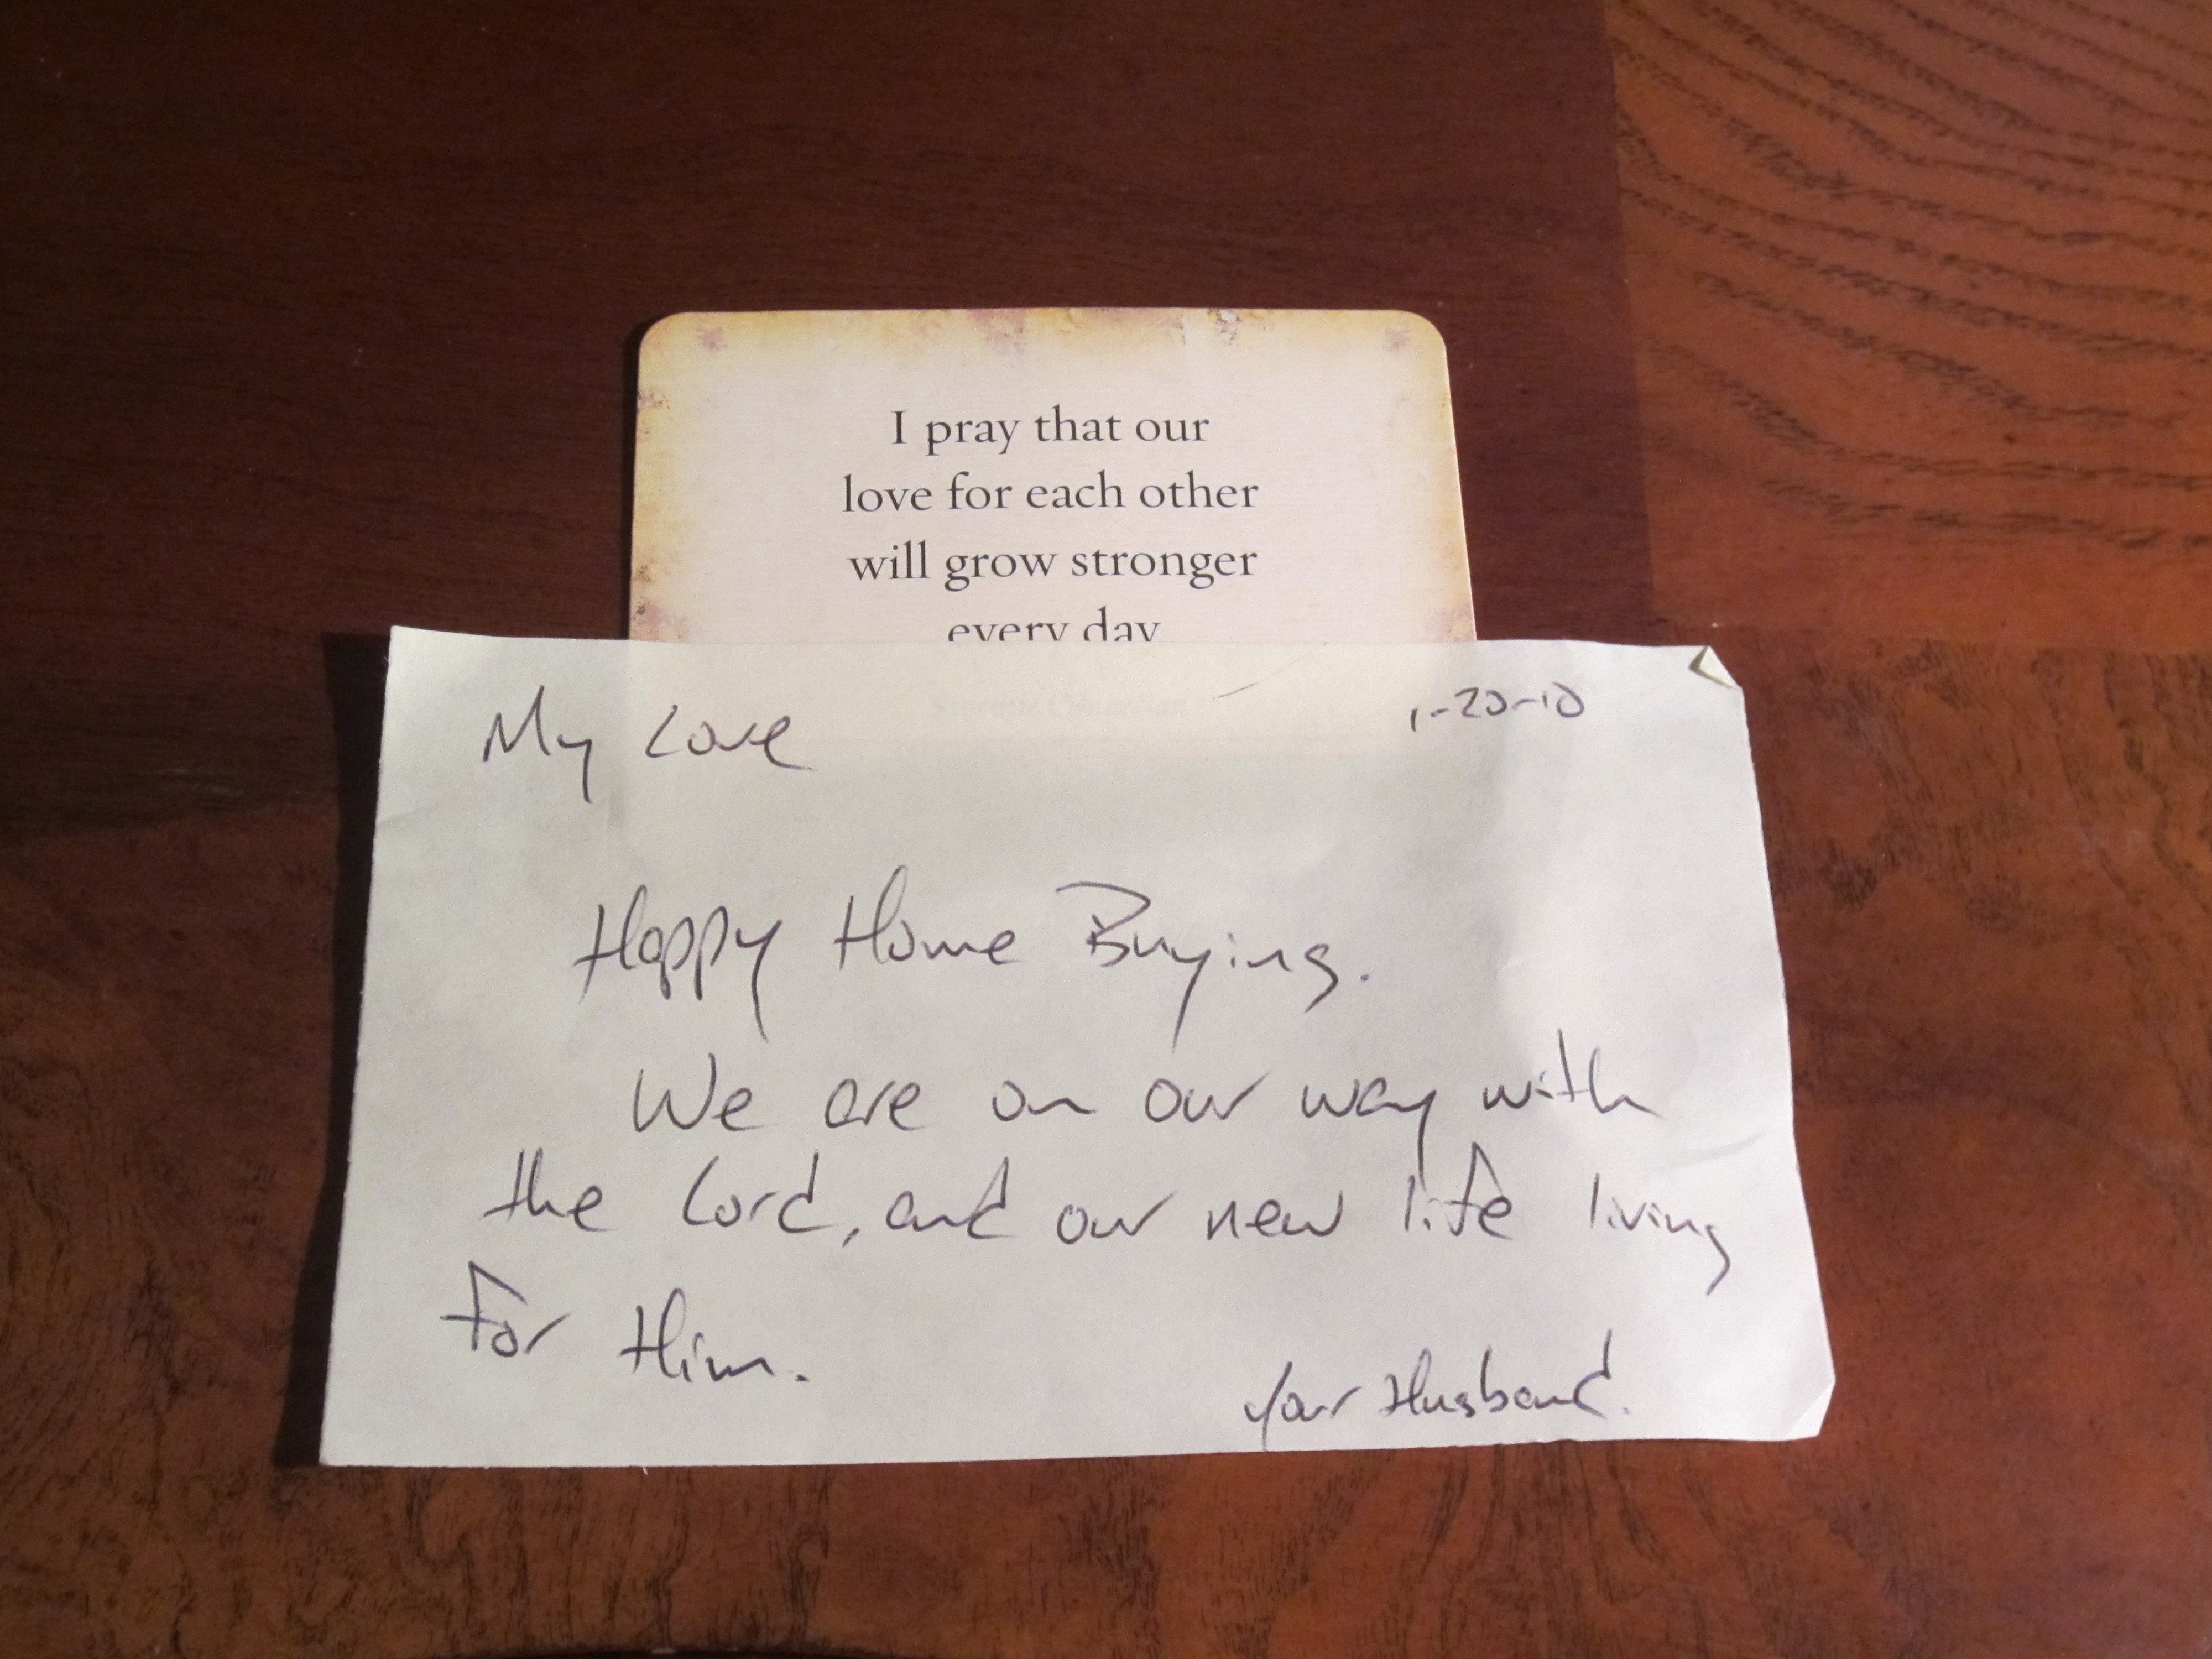 I pray that our
love for each other
will grow stronger
every day
My Love
1-20-10
Happy Home Buying.
We are on our way with
the Lord, and our new life living
For Him.
Your Husband.